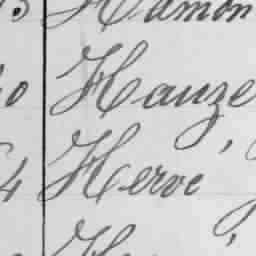 Hamon
0 Hauze
4 Hervé